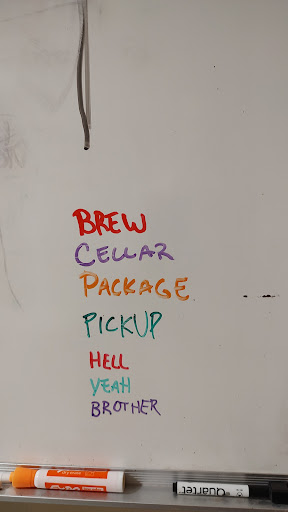 BREW
CELLAR
PACKAGE
PICKUP
HELL
YEAH
BROTHER
Quartet